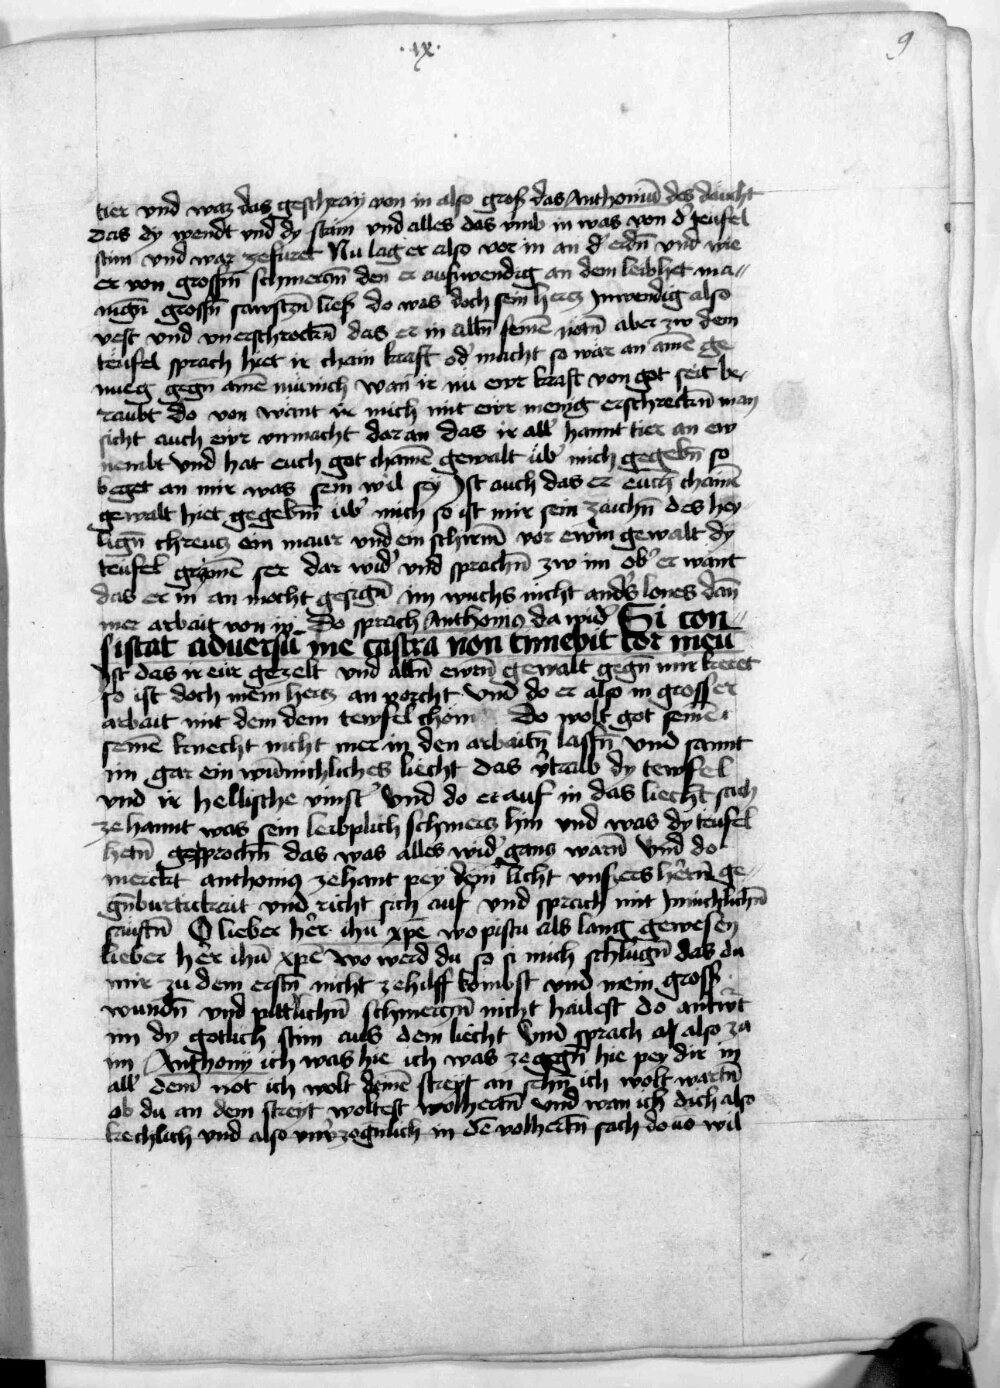 ·ix·
9
tier vnd waz das geschray von in also groß das Anthoniū des daucht
Das dy wendt vnd dy stain vnd alles das vmb in was von d' teufel
stim vnd war zefuret Nu lag er also vor in an d' erdn̄ vnd wie
er von grossm̄ schmerczn̄ den er aufwendig an dem leib het ma
nign̄ grossn̄ sawfczn̄ ließ do was doch sein hercz Inwendig also
vest vnd vnerschrockn̄ das er in alln̄ seinē nötn̄ aber zw dem
teufel sprach hiet ir chain kraft od' macht so wär an ainē ge
nueg gegn̄ ainē münich wan ir nu ewr kraft von got seit be
raubt do von want ir mich mit ewr menig erschreckn̄ man
sicht auch ewr vnmacht dar an das ir all' hannt tier an ew
nembt Vnd hat euch got chainē gewalt üb' mich gegebn̄ so
beget an mir was sein wil sey Ist auch das er euch chainē
gewalt hiet gegebn̄ üb' mich so ist mir sein zaichn̄ des hey
lign̄ chreucz ein maur vnd ein schirm̄ vor ewrm gewalt dy
teufel grymē ser dar wid' vnd sprachn̄ zw im ob er want
das er in an mocht gesign̄ im wuchs nicht and's lones dan̄
mer arbait von in Do sprach Anthoni9 da wid' Si con
sistat aduersū me castra non timebit cor meū
Ist das ir eur gezelt vnd alln̄ ewrn̄ gewalt gegn̄ mir keret
so ist doch mein hercz an vorcht Vnd do er also in grosser
arbait mit dem dem tewfel chom Do wolt got seinē
seinē knecht nicht mer in den arbaitn̄ lassn̄ Vnd sannt
im gar ein wūnichliches liecht das v'traib dy tewfel
vnd ir hellische vinst' Vnd do er auf in das liecht sach
ze hannt was sein leibplich schmercz hin vnd was dy teufel
hetn̄ gesprochn̄ das was alles wid' gancz warn̄ Vnd do
merckt anthoni9 zehant pey dem licht vnsers herrn̄ ge
gn̄burtickait vnd richt sich auf vnd sprach mit Inichlichn̄
säuftn̄ O lieber her' ihū xpē wo pistu als lang gewesen
lieber her' ihū xpē wo werd du so si mich schlügn̄ das du
mir zu dem erstn̄ nicht zehilff kombst vnd mein groß
wundn̄ vnd pittlichn̄ schmerczn̄ nicht hailest do antw't
im dy gotlich stim aus dem liecht Vnd sprach also zu
im Anthony ich was hie ich was ze gegn̄ hie pey dir in
all' deinr not ich wolt deinē streyt an sehn̄ ich wolt wartn̄
ob du an dem streyt woltest volhertn̄ Vnd wan ich dich also
kechlich vnd also vnv'zegnlich in dē volhertn̄ sach do vō wil